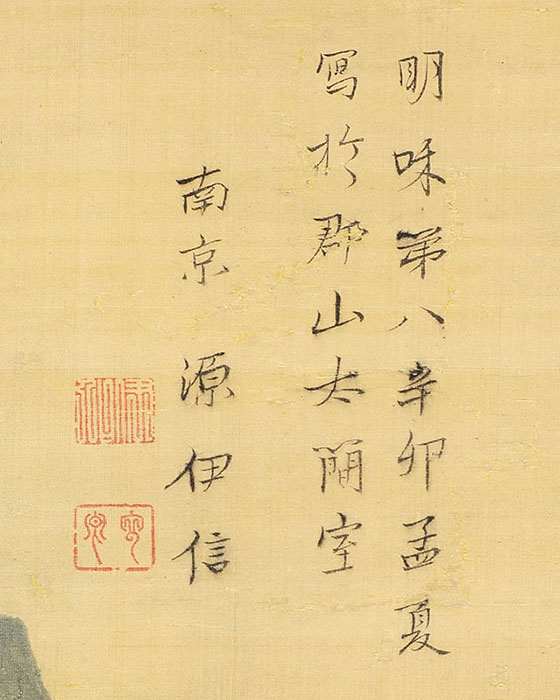 明和第八辛卯孟夏
寫於郡山大簡室
南京 源伊信